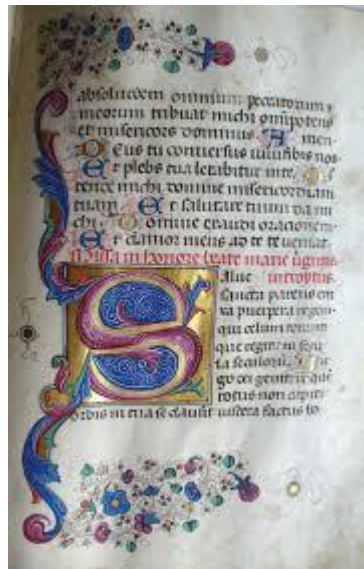 absolucoem omnium peccatorum
meorum tribuat michi omnipotens
et misericors dominus. Amen
Deus tu conversus vivificabis nos
Et plebs tua letabitur in te. Os
tende michi domine misericordiam
tuam. Et salutare tuum da mi
chi. Domine exaudi orationem
Et clamor meus ad te veniat
Missa in honore beate marie virginis
Salve introytus
sancta parens en
xa puerpera regem
qui celum terram
que regit in secu
la seculorum. Vir
go dei genitrix quem
totus non capit
orbis in tua se clausit viscera factus ho